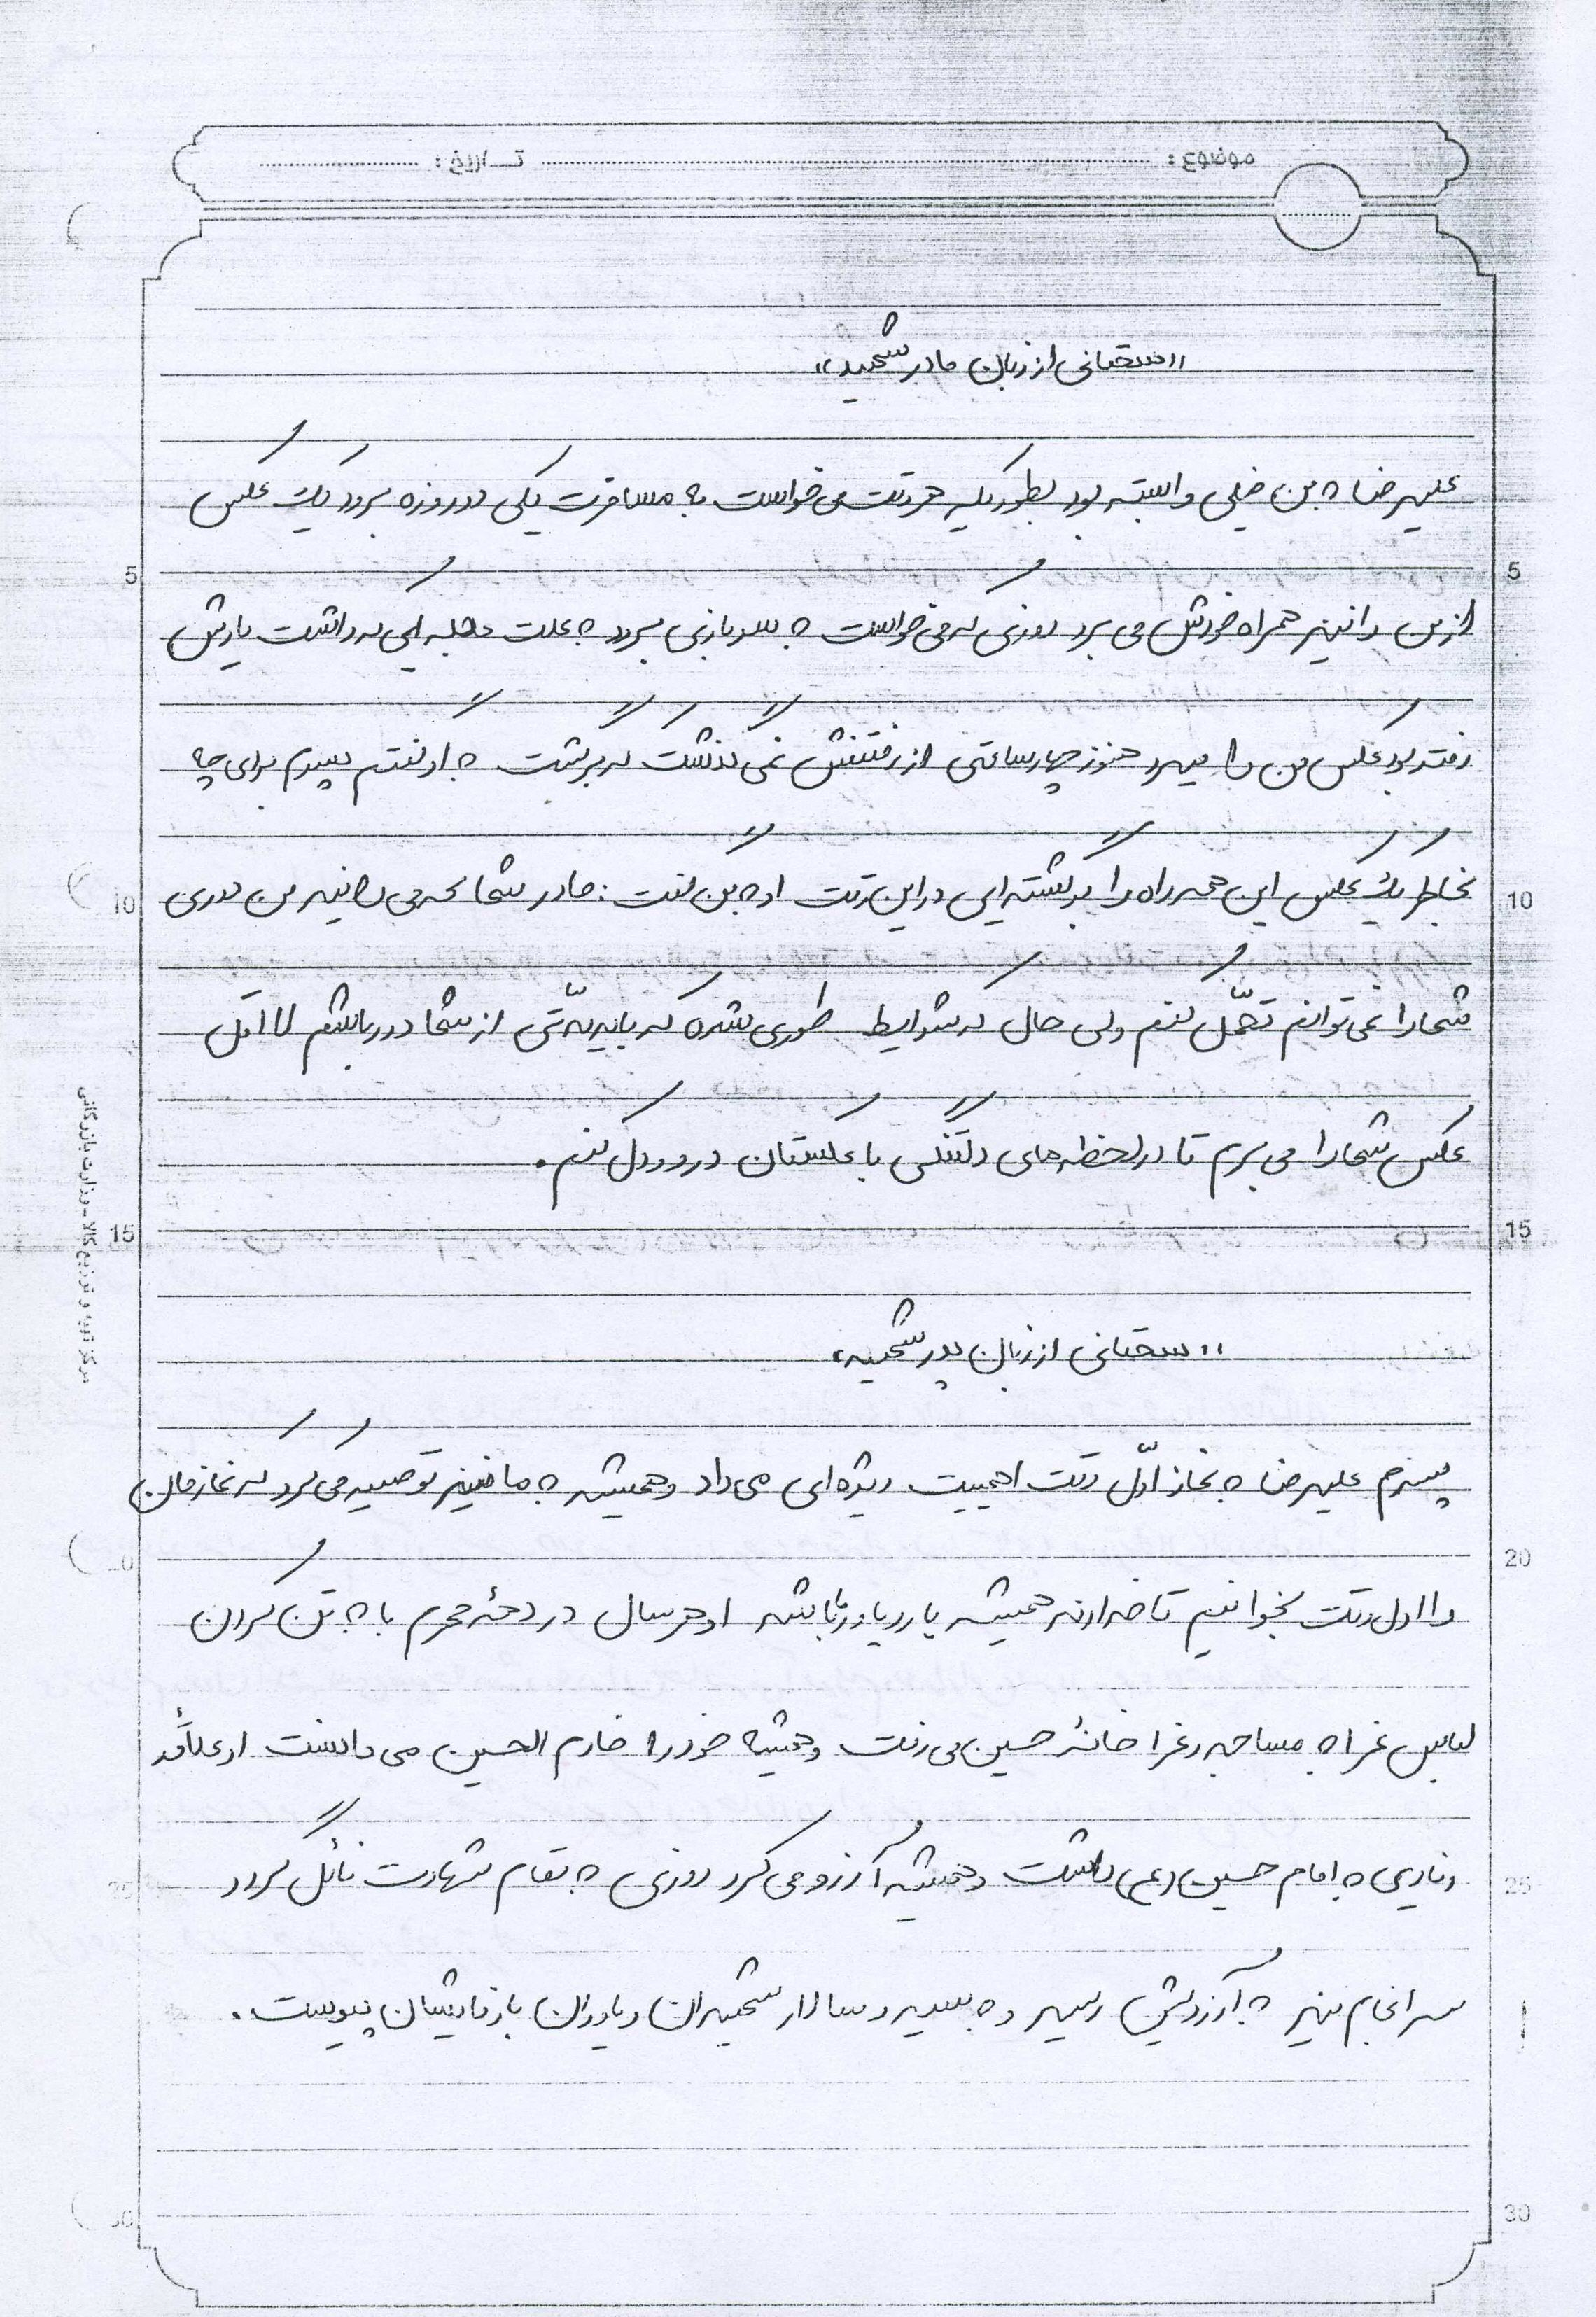 موضوع : تاریخ :
"سخنانی از زبان مادر شهید"
علیرضا به من خیلی وابسته بود بطوریکه هر وقت می خواست به مسافرت یکی دو روزه برود یک عکس
5 5
از من را نیز همراه خودش می برد روزی که می خواست به سربازی برود به علت عجله ایی که داشت یادش
رفته بود عکس من را ببرد هنوز چهار ساعتی از رفتنش نمی گذشت که برگشت به او گفتم پسرم برای چه
بخاطر یک عکس این همه راه را برگشته ایی در این وقت او به من گفت : مادر شما که می دانید من دوری
10 10
شما را نمی توانم تحمّل کنم ولی حال که شرایط طوری شده که باید مدّتی از شما دور باشم لااقل
عکس شما را می برم تا در لحظه های دلتنگی با عکستان درد و دل کنم .
15 15
"سخنانی از زبان پدر شهید"
پسرم علیرضا به نماز اوّل وقت اهمییت ویژه ای می داد و همیشه به ما نیز توصیه می کرد که نمازمان
20
را اول وقت بخوانیم تا خداوند همیشه یار و یاورمان باشد او هر سال در دههٔ محرم با به تن کردن
لباس عزا به مساجد و عزا خانهٔ حسین می رفت و همیشه خود را خادم الحسین می دانست او علاقه
25 25
زیادی به امام حسین (ع) داشت و همیشه آرزو می کرد روزی به مقام شهادت نائل گردد
سرانجام نیز به آرزویش رسید و به سید و سالار شهیدان و یاوران باوفایشان پیوست .
30
مرکز تهیه و توزیع کالا - وزارت بازرگانی